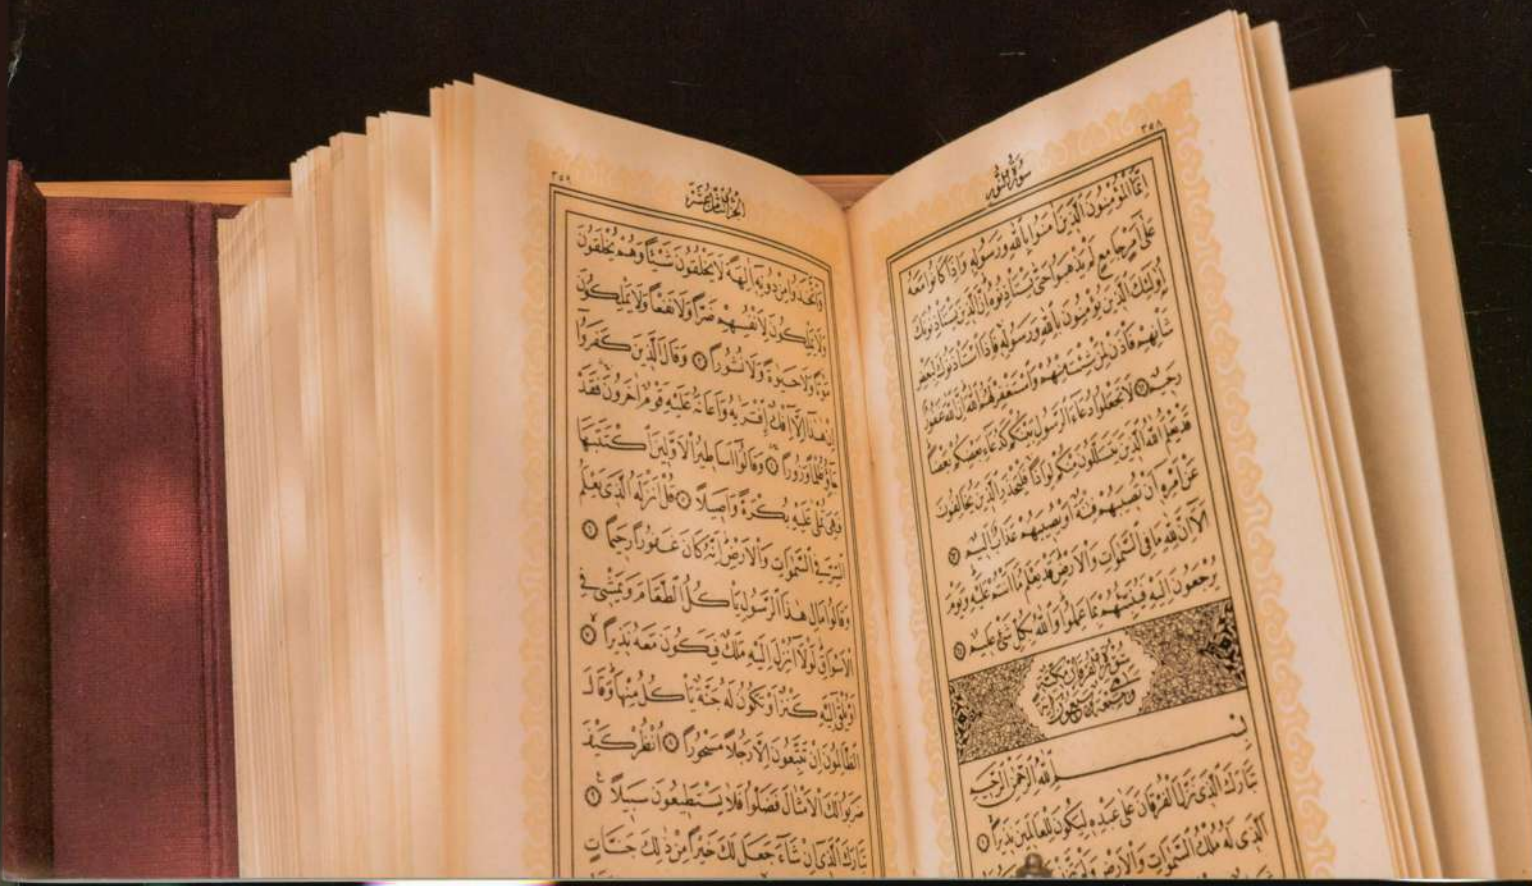 ٣٥٨
سُورَةُ النُّورِ
اِنَّمَا الْمُؤْمِنُونَ الَّذِينَ اٰمَنُوا بِاللّٰهِ وَرَسُولِهِ وَاِذَا كَانُوا مَعَهُ
عَلٰٓى اَمْرٍ جَامِعٍ لَمْ يَذْهَبُوا حَتّٰى يَسْتَأْذِنُوهُ اِنَّ الَّذِينَ يَسْتَأْذِنُونَكَ
اُولٰٓئِكَ الَّذِينَ يُؤْمِنُونَ بِاللّٰهِ وَرَسُولِهِ فَاِذَا اسْتَأْذَنُوكَ لِبَعْضِ
شَأْنِهِمْ فَأْذَنْ لِمَنْ شِئْتَ مِنْهُمْ وَاسْتَغْفِرْ لَهُمُ اللّٰهَ اِنَّ اللّٰهَ غَفُورٌ
رَحِيمٌ ٦٢ لَا تَجْعَلُوا دُعَآءَ الرَّسُولِ بَيْنَكُمْ كَدُعَآءِ بَعْضِكُمْ بَعْضًا
قَدْ يَعْلَمُ اللّٰهُ الَّذِينَ يَتَسَلَّلُونَ مِنْكُمْ لِوَاذًا فَلْيَحْذَرِ الَّذِينَ يُخَالِفُونَ
عَنْ اَمْرِهِٓ اَنْ تُصِيبَهُمْ فِتْنَةٌ اَوْ يُصِيبَهُمْ عَذَابٌ اَلِيمٌ ٦٣
اَلَآ اِنَّ لِلّٰهِ مَا فِى السَّمٰوَاتِ وَالْاَرْضِ قَدْ يَعْلَمُ مَآ اَنْتُمْ عَلَيْهِ وَيَوْمَ
يُرْجَعُونَ اِلَيْهِ فَيُنَبِّئُهُمْ بِمَا عَمِلُوا وَاللّٰهُ بِكُلِّ شَىْءٍ عَلِيمٌ ٦٤
سُورَةُ الْفُرْقَانِ مَكِّيَّةٌ
وَهِىَ سَبْعٌ وَسَبْعُونَ اٰيَةً
بِسْمِ اللّٰهِ الرَّحْمٰنِ الرَّحِيمِ
تَبَارَكَ الَّذِى نَزَّلَ الْفُرْقَانَ عَلٰى عَبْدِهِ لِيَكُونَ لِلْعَالَمِينَ نَذِيرًا ١
اَلَّذِى لَهُ مُلْكُ السَّمٰوَاتِ وَالْاَرْضِ وَلَمْ يَتَّخِذْ
٣٥٩
اَلْجُزْءُ الثَّامِنُ عَشَرَ
وَاتَّخَذُوا مِنْ دُونِهِٓ اٰلِهَةً لَا يَخْلُقُونَ شَيْـًٔا وَهُمْ يُخْلَقُونَ
وَلَا يَمْلِكُونَ لِاَنْفُسِهِمْ ضَرًّا وَلَا نَفْعًا وَلَا يَمْلِكُونَ
مَوْتًا وَلَا حَيٰوةً وَلَا نُشُورًا ٣ وَقَالَ الَّذِينَ كَفَرُٓوا
اِنْ هٰذَآ اِلَّآ اِفْكٌ اِفْتَرٰيهُ وَاَعَانَهُ عَلَيْهِ قَوْمٌ اٰخَرُونَ فَقَدْ
جَآؤُ ظُلْمًا وَزُورًا ٤ وَقَالُٓوا اَسَاطِيرُ الْاَوَّلِينَ اكْتَتَبَهَا
فَهِىَ تُمْلٰى عَلَيْهِ بُكْرَةً وَاَصِيلًا ٥ قُلْ اَنْزَلَهُ الَّذِى يَعْلَمُ
السِّرَّ فِى السَّمٰوَاتِ وَالْاَرْضِ اِنَّهُ كَانَ غَفُورًا رَحِيمًا ٦
وَقَالُوا مَالِ هٰذَا الرَّسُولِ يَأْكُلُ الطَّعَامَ وَيَمْشِى فِى
الْاَسْوَاقِ لَوْلَآ اُنْزِلَ اِلَيْهِ مَلَكٌ فَيَكُونَ مَعَهُ نَذِيرًا ٧
اَوْ يُلْقٰٓى اِلَيْهِ كَنْزٌ اَوْ تَكُونُ لَهُ جَنَّةٌ يَأْكُلُ مِنْهَا وَقَالَ
الظَّالِمُونَ اِنْ تَتَّبِعُونَ اِلَّا رَجُلًا مَسْحُورًا ٨ اُنْظُرْ كَيْفَ
ضَرَبُوا لَكَ الْاَمْثَالَ فَضَلُّوا فَلَا يَسْتَطِيعُونَ سَبِيلًا ٩
تَبَارَكَ الَّذِٓى اِنْ شَآءَ جَعَلَ لَكَ خَيْرًا مِنْ ذٰلِكَ جَنَّاتٍ